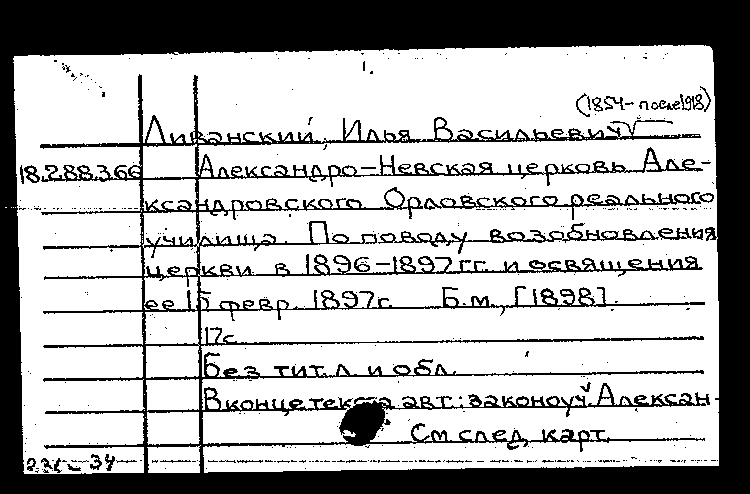 1.
(1854- после 1918)
Ливанский, Илья Васильевич
18.288.366 Александро-Невская церковь Але-
ксандровского Орловского реального
училища. По поводу возобновления
церкви в 1896-1897 гг. и освящения
ее 15 февр. 1897г. Б.м., [1898].
17с.
Без тит. л. и обл.
В конце текста авт.: законоуч. Алексан-
См. след. карт.
34